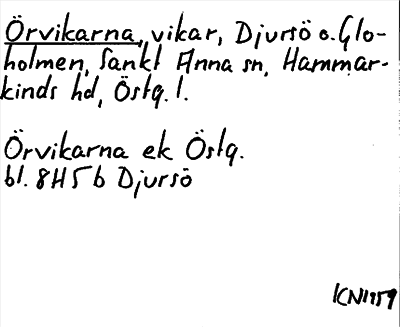 Örvikarna, vikar, Djursö o. Glo-
holmen, Sankt Anna sn, Hammar-
kinds hd, Östg. l.
Örvikarna ek Östg.
bl. 8H5b Djursö
KN1959